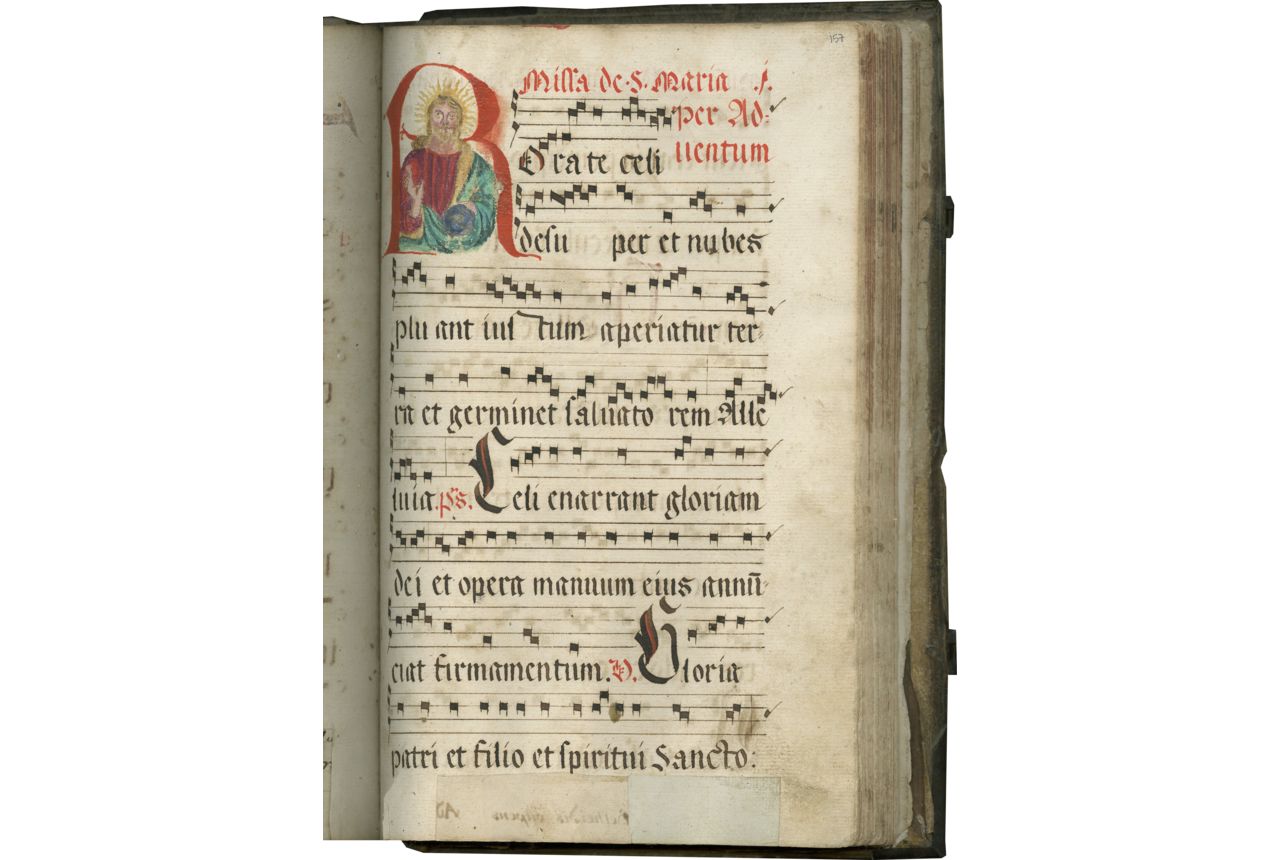 157
Missa de. S. Maria j.
per Ad=
uentum
Rorate celi
desu per et nubes
plu ant ius tum aperiatur ter=
ra et germinet saluato rem Alle
luia. ps. Celi enarrant gloriam
dei et opera manuum eius annū=
ciat firmamentum. V. Gloria
patri et filio et spiritui Sancto: